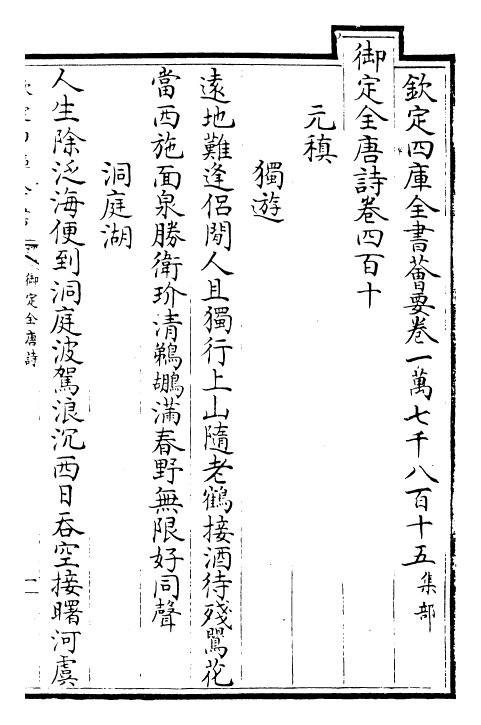 欽定四庫全書薈要卷一萬七千八百十五集部
御定全唐詩卷四百十
元稹
獨遊
遠地難逢侣閒人且獨行上山隨老鶴接酒待殘鶯花
當西施面泉勝衛玠清鵜鶘滿春野無限好同聲
洞庭湖
人生除泛海便到洞庭波駕浪沉西日吞空接曙河虞
御定全唐詩